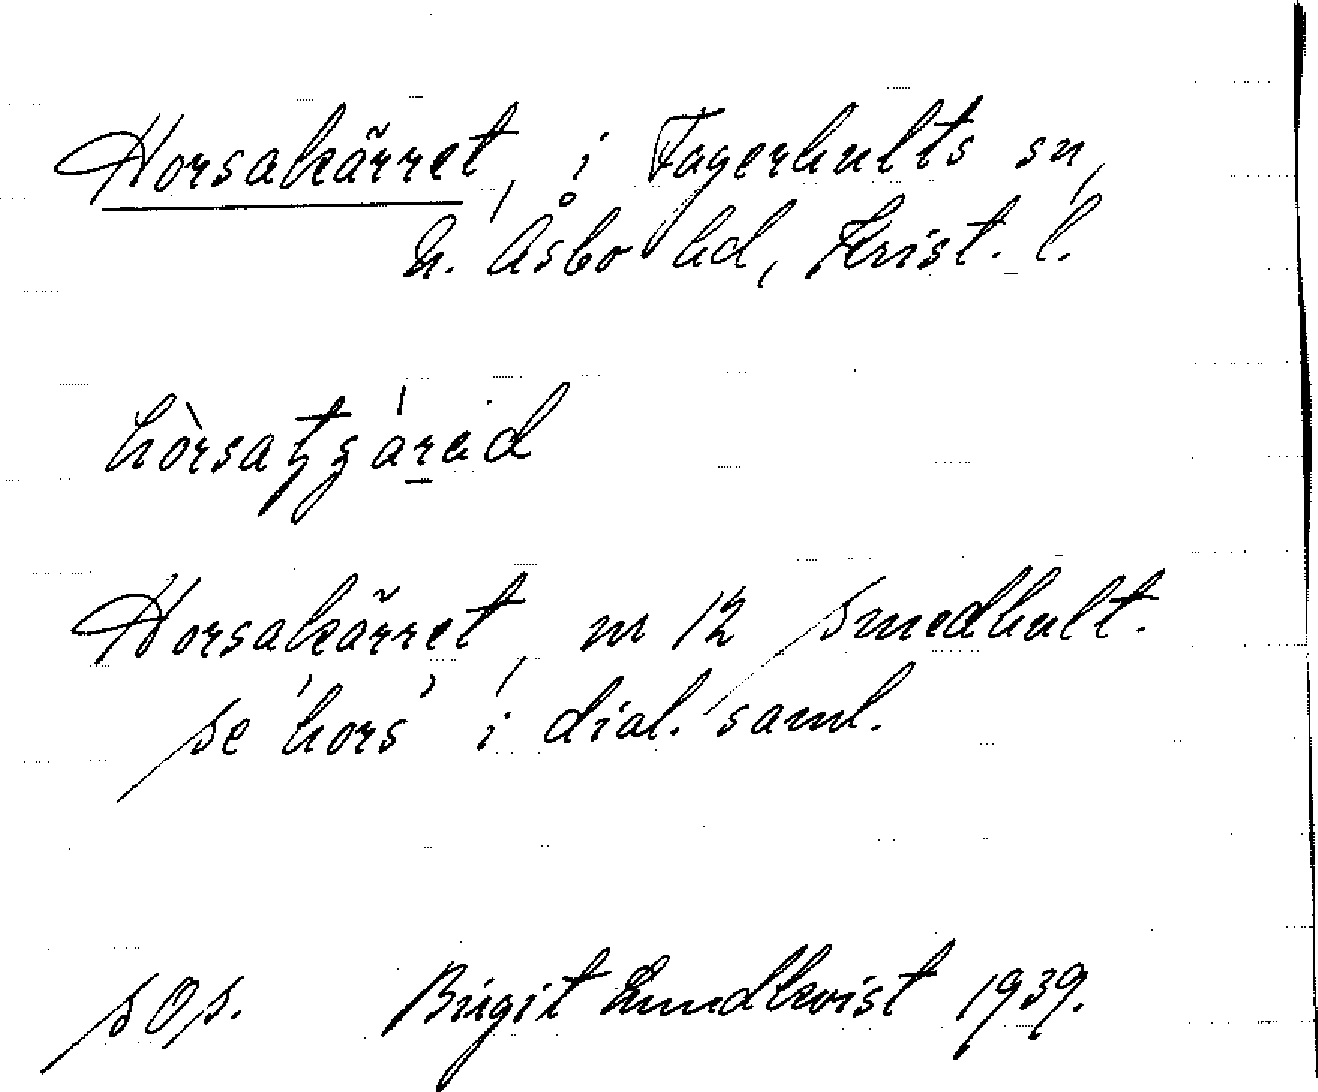 Horsakärret, i Fagerhults sn,
N. Åsbo hd, Krist. l.
Horsakärret, nr 12 Smedhult.
se 'hors' i dial. saml.
SOS. Birgit Lundkvist 1939.